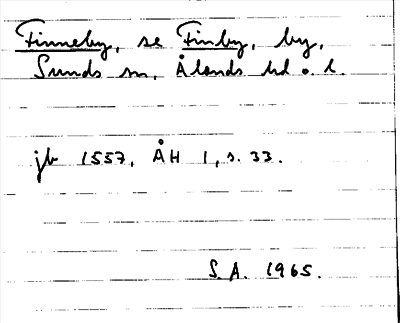 Finneby, se Finby, by,
Sunds sn, Ålands hd o. l.
jb 1557, ÅH 1, s. 33.
S. A. 1965.